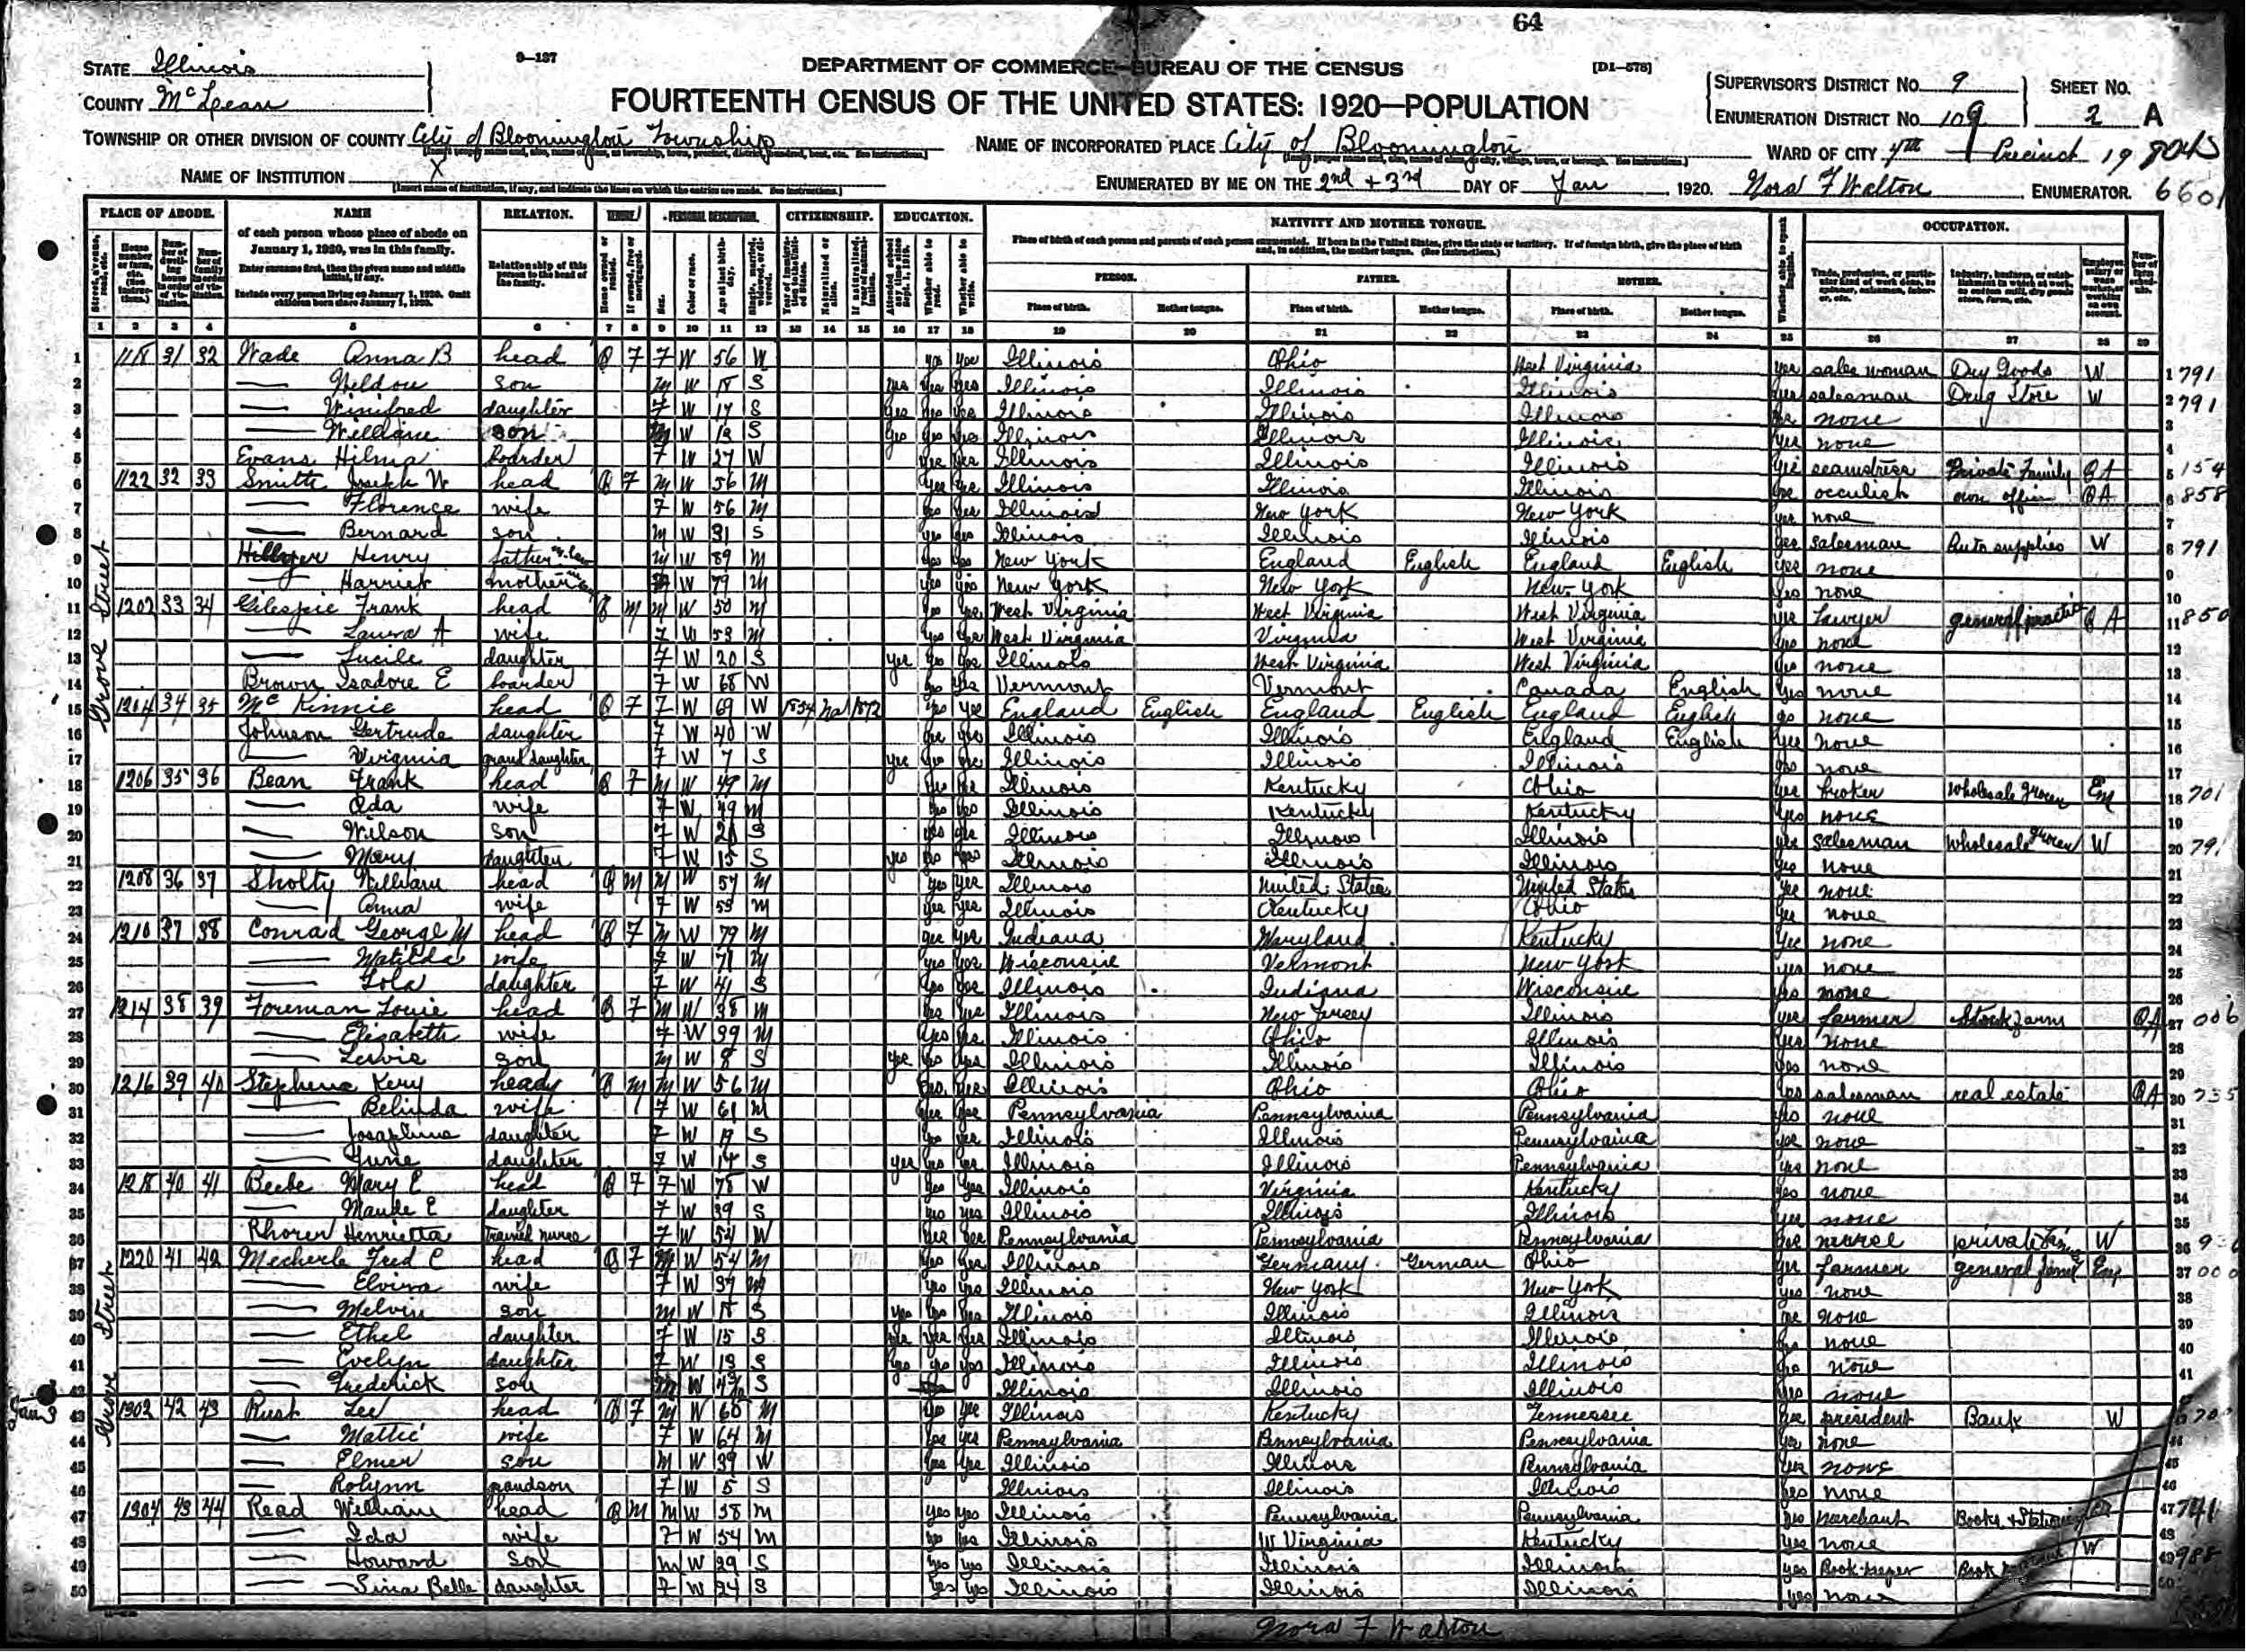 64
STATE Illinois
9-137
DEPARTMENT OF COMMERCE—BUREAU OF THE CENSUS
[D1-578]
SUPERVISOR'S DISTRICT No. 9
SHEET No.
COUNTY McLean
FOURTEENTH CENSUS OF THE UNITED STATES: 1920—POPULATION
ENUMERATION DISTRICT No. 109
2 A
TOWNSHIP OR OTHER DIVISION OF COUNTY City of Bloomington Township
NAME OF INCORPORATED PLACE City of Bloomington
WARD OF CITY 4th Precinct 19
NAME OF INSTITUTION X
ENUMERATED BY ME ON THE 2nd + 3rd DAY OF Jan, 1920. Nora F Walton ENUMERATOR. 6601
PLACE OF ABODE. NAME RELATION. TENURE. PERSONAL DESCRIPTION. CITIZENSHIP. EDUCATION. NATIVITY AND MOTHER TONGUE. OCCUPATION.
of each person whose place of abode on January 1, 1920, was in this family.
Enter surname first, then the given name and middle initial, if any.
Include every person living on January 1, 1920. Omit children born since January 1, 1920.
Relationship of this person to the head of the family.
Place of birth of each person and parents of each person enumerated. If born in the United States, give the state or territory. If of foreign birth, give the place of birth and, in addition, the mother tongue. (See Instructions.)
PERSON. FATHER. MOTHER.
Place of birth. Mother tongue. Place of birth. Mother tongue. Place of birth. Mother tongue.
1 2 3 4 5 6 7 8 9 10 11 12 13 14 15 16 17 18 19 20 21 22 23 24 25 26 27 28 29
Grove Street
1 1118 31 32 Wade Anna B head O F F W 56 W yes yes Illinois Ohio West Virginia yes sales woman Dry Goods W 1 791
2 — Weldon son M W 18 S yes yes yes Illinois Illinois Illinois yes salesman Drug Store W 2 791
3 — Winifred daughter F W 17 S yes yes yes Illinois Illinois Illinois yes none 3
4 — William son M W 13 S yes yes yes Illinois Illinois Illinois yes none 4
5 Evans Hilma Boarder F W 27 W yes yes Illinois Illinois Illinois yes seamstress Private Family OA 5 154
6 1122 32 33 Smith Joseph W head O F M W 56 M yes yes Illinois Illinois Illinois yes occulist own office OA 6 858
7 — Florence wife F W 56 M yes yes Illinois New York New York yes none 7
8 — Bernard son M W 31 S yes yes Illinois Illinois Illinois yes salesman Auto supplies W 8 791
9 Hillyer Henry father in law M W 89 M yes yes New York England English England English yes none 9
10 — Harriet mother in law W 79 M yes yes New York New York New York yes none 10
11 1202 33 34 Gilespie Frank head O M M W 50 M yes yes West Virginia West Virginia West Virginia yes Lawyer general practice OA 11 850
12 — Laura A wife F W 53 M yes yes West Virginia Virginia West Virginia yes none 12
13 — Lucile daughter F W 20 S yes yes yes Illinois West Virginia West Virginia yes none 13
14 Brown Isadore E boarder F W 68 W yes yes Vermont Vermont Canada English yes none 14
15 1204 34 35 McKinnie head O F F W 69 W 1854 Na 1872 yes yes England English England English England English yes none 15
16 Johnson Gertrude daughter F W 40 W yes yes Illinois Illinois England English yes none 16
17 — Virginia grand daughter F W 7 S yes yes yes Illinois Illinois Illinois yes none 17
18 1206 35 36 Bean Frank head O F M W 49 M yes yes Illinois Kentucky Ohio yes broker wholesale grocer Em 18 701
19 — Ada wife F W 49 M yes yes Illinois Kentucky Kentucky yes none 19
20 — Wilson son F W S yes yes Illinois Illinois Illinois yes salesman wholesale grocer W 20 791
21 — Mary daughter F W 15 S yes yes yes Illinois Illinois Illinois yes none 21
22 1208 36 37 Sholty William head O M M W 57 M yes yes Illinois United States United States yes none 22
23 — Anna wife F W 53 M yes yes Illinois Kentucky Ohio yes none 23
24 1210 37 38 Conrad George M head O F M W 79 M yes yes Indiana Maryland Kentucky yes none 24
25 — Matilda wife F W 71 M yes yes Wisconsin Vermont New York yes none 25
26 — Lola daughter F W 41 S yes yes Illinois Indiana Wisconsin yes none 26
27 1214 38 39 Foreman Louie head O F M W 38 M yes yes Illinois New Jersey Illinois yes farmer Stock farm OA 27 006
28 — Elizabeth wife F W 39 M yes yes Illinois Ohio Illinois yes none 28
29 — Lewis son M W 8 S yes yes yes Illinois Illinois Illinois yes none 29
30 1216 39 40 Stephens Kery head O M M W 56 M yes yes Illinois Ohio Ohio yes salesman real estate OA 30 735
31 — Belinda wife F W 61 M yes yes Pennsylvania Pennsylvania Pennsylvania yes none 31
32 — Josephine daughter F W 19 S yes yes Illinois Illinois Pennsylvania yes none 32
33 — June daughter F W 14 S yes yes yes Illinois Illinois Pennsylvania yes none 33
34 1218 40 41 Beebe Mary E head O F F W 78 W yes yes Illinois Virginia Kentucky yes none 34
35 — Maude E daughter F W 39 S yes yes Illinois Illinois Illinois yes none 35
36 Rhorer Henrietta trained nurse F W 54 W yes yes Pennsylvania Pennsylvania Pennsylvania yes nurse private family W 36
37 1220 41 42 Mecherle Fred C head O F M W 54 M yes yes Illinois Germany German Ohio yes farmer general farm Em 37 000
38 — Elvina wife F W 39 M yes yes Illinois New York New York yes none 38
39 — Melvin son M W 18 S yes yes yes Illinois Illinois Illinois yes none 39
40 — Ethel daughter F W 15 S yes yes yes Illinois Illinois Illinois yes none 40
41 — Evelyn daughter F W 13 S yes yes yes Illinois Illinois Illinois yes none 41
42 — Frederick son M W S Illinois Illinois Illinois yes none
Jan 3 43 1302 42 43 Rust Lee head O F M W 68 M yes yes Illinois Kentucky Tennessee yes president Bank W
44 — Mattie wife F W 64 M yes yes Pennsylvania Pennsylvania Pennsylvania yes none 44
45 — Elmer son M W 39 W yes yes Illinois Illinois Pennsylvania yes none 45
46 — Rolynn grandson F W 5 S Illinois Illinois Illinois yes none 46
47 1304 43 44 Read William head O M M W 58 M yes yes Illinois Pennsylvania Pennsylvania yes merchant Books + Stationery 47 741
48 — Ida wife F W 54 M yes yes Illinois W Virginia Kentucky yes none 48
49 — Howard son M W 29 S yes yes Illinois Illinois Illinois yes Book-keeper Book W 49 988
50 — Sina Belle daughter F W 24 S yes yes Illinois Illinois Illinois yes none 50
Nora F Walton